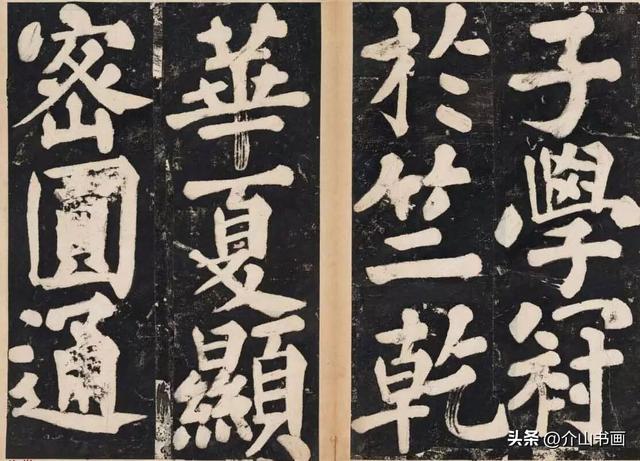 子學冠
於竺乾
華夏顯
密圓通
头条 @介山书画